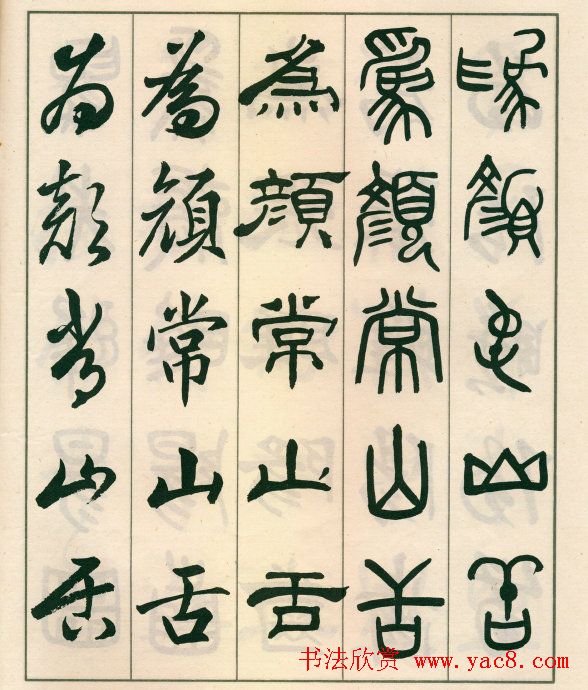 爲顏山舌
爲顏常山舌
為顏常山舌
為顏常山舌
為顏常山舌
书法欣赏 www.yac8.com